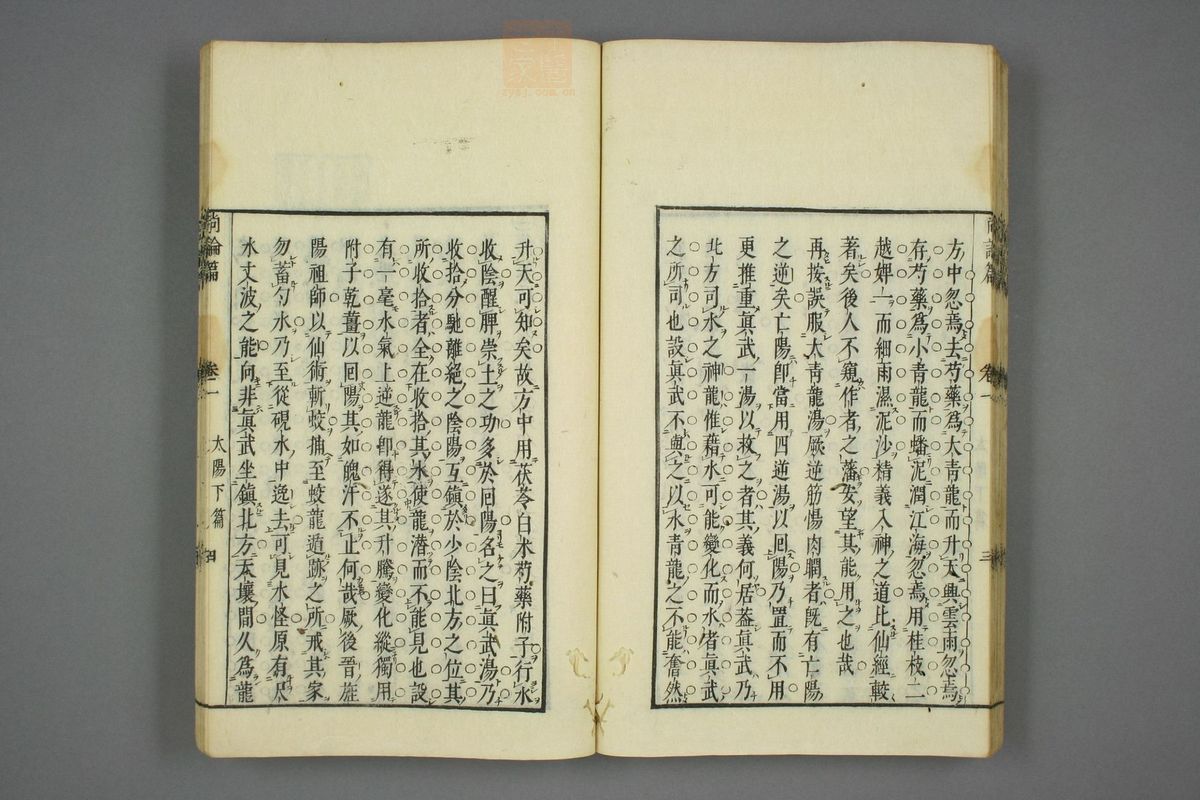 方中忽焉去芍藥爲大青龍而升天興雲雨忽焉
存芍藥爲小青龍而蟠泥潤江海忽焉用桂枝二
越婢一而細雨濕泥沙精義入神之道比仙經較
著矣後人不窺作者之藩安望其能用之也哉
再按誤服大青龍湯厥逆筋惕肉瞤者既有亡陽
之逆矣亡陽即當用四逆湯以囘陽乃置而不用
更推重眞武一湯以救之者其義何居葢眞武乃
北方司水之神龍惟藉水可能變化而水者眞武
之所司也設眞武不與之以水青龍之不能奮然
三
升天可知矣故方中用茯苓白术芍藥附子行水
收陰醒脾崇土之功多於囘陽名之曰眞武湯乃
收拾分馳離絕之陰陽互鎭於少陰北方之位其
所收拾者全在收拾其水使龍潛而不能見也設
有一毫水氣上逆龍即得遂其升騰變化縱獨用
附子乾薑以囘陽其如魄汗不止何哉厥後晉旌
陽祖師以仙術斬蛟捕至蛟龍遁跡之所戒其家
勿蓄勺水乃至從硯水中逸去可見水怪原有尺
水丈波之能向非眞武坐鎭北方天壤間久爲龍
尚論篇
卷一
太陽下篇
四
zysj.com.cn